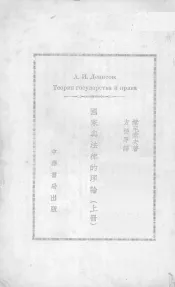 А. И. Денисов
Теория государства и права
國家與法律的理論（上冊）
中華書局出版